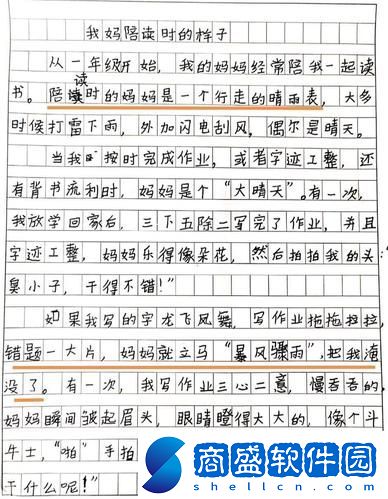 我妈陪读时的样子
从一年级开始，我的妈妈经常陪我一起读
书。陪读读时的妈妈是一个行走的晴雨表，大多
时候打雷下雨，外加闪电刮风，偶尔是晴天。
当我时按时完成作业，或者字迹工整，还
有背书流利时，妈妈是个“大晴天”。有一次，
我放学回家后，三下五除二写完了作业，并且
字迹工整，妈妈乐得像朵花，然后拍拍我的头：“
臭小子，干得不错！”
如果我写的字龙飞凤舞，写作业拖拖拉拉，
错题一大片，妈妈就立马“暴风骤雨”，把我淹
没了。有一次，我写作业三心二意，慢吞吞的，
妈妈瞬间皱起眉头，眼睛瞪得大大的，像个斗
牛士，“啪”手拍
干什么呢！”
商盛软件园
shengshic.com